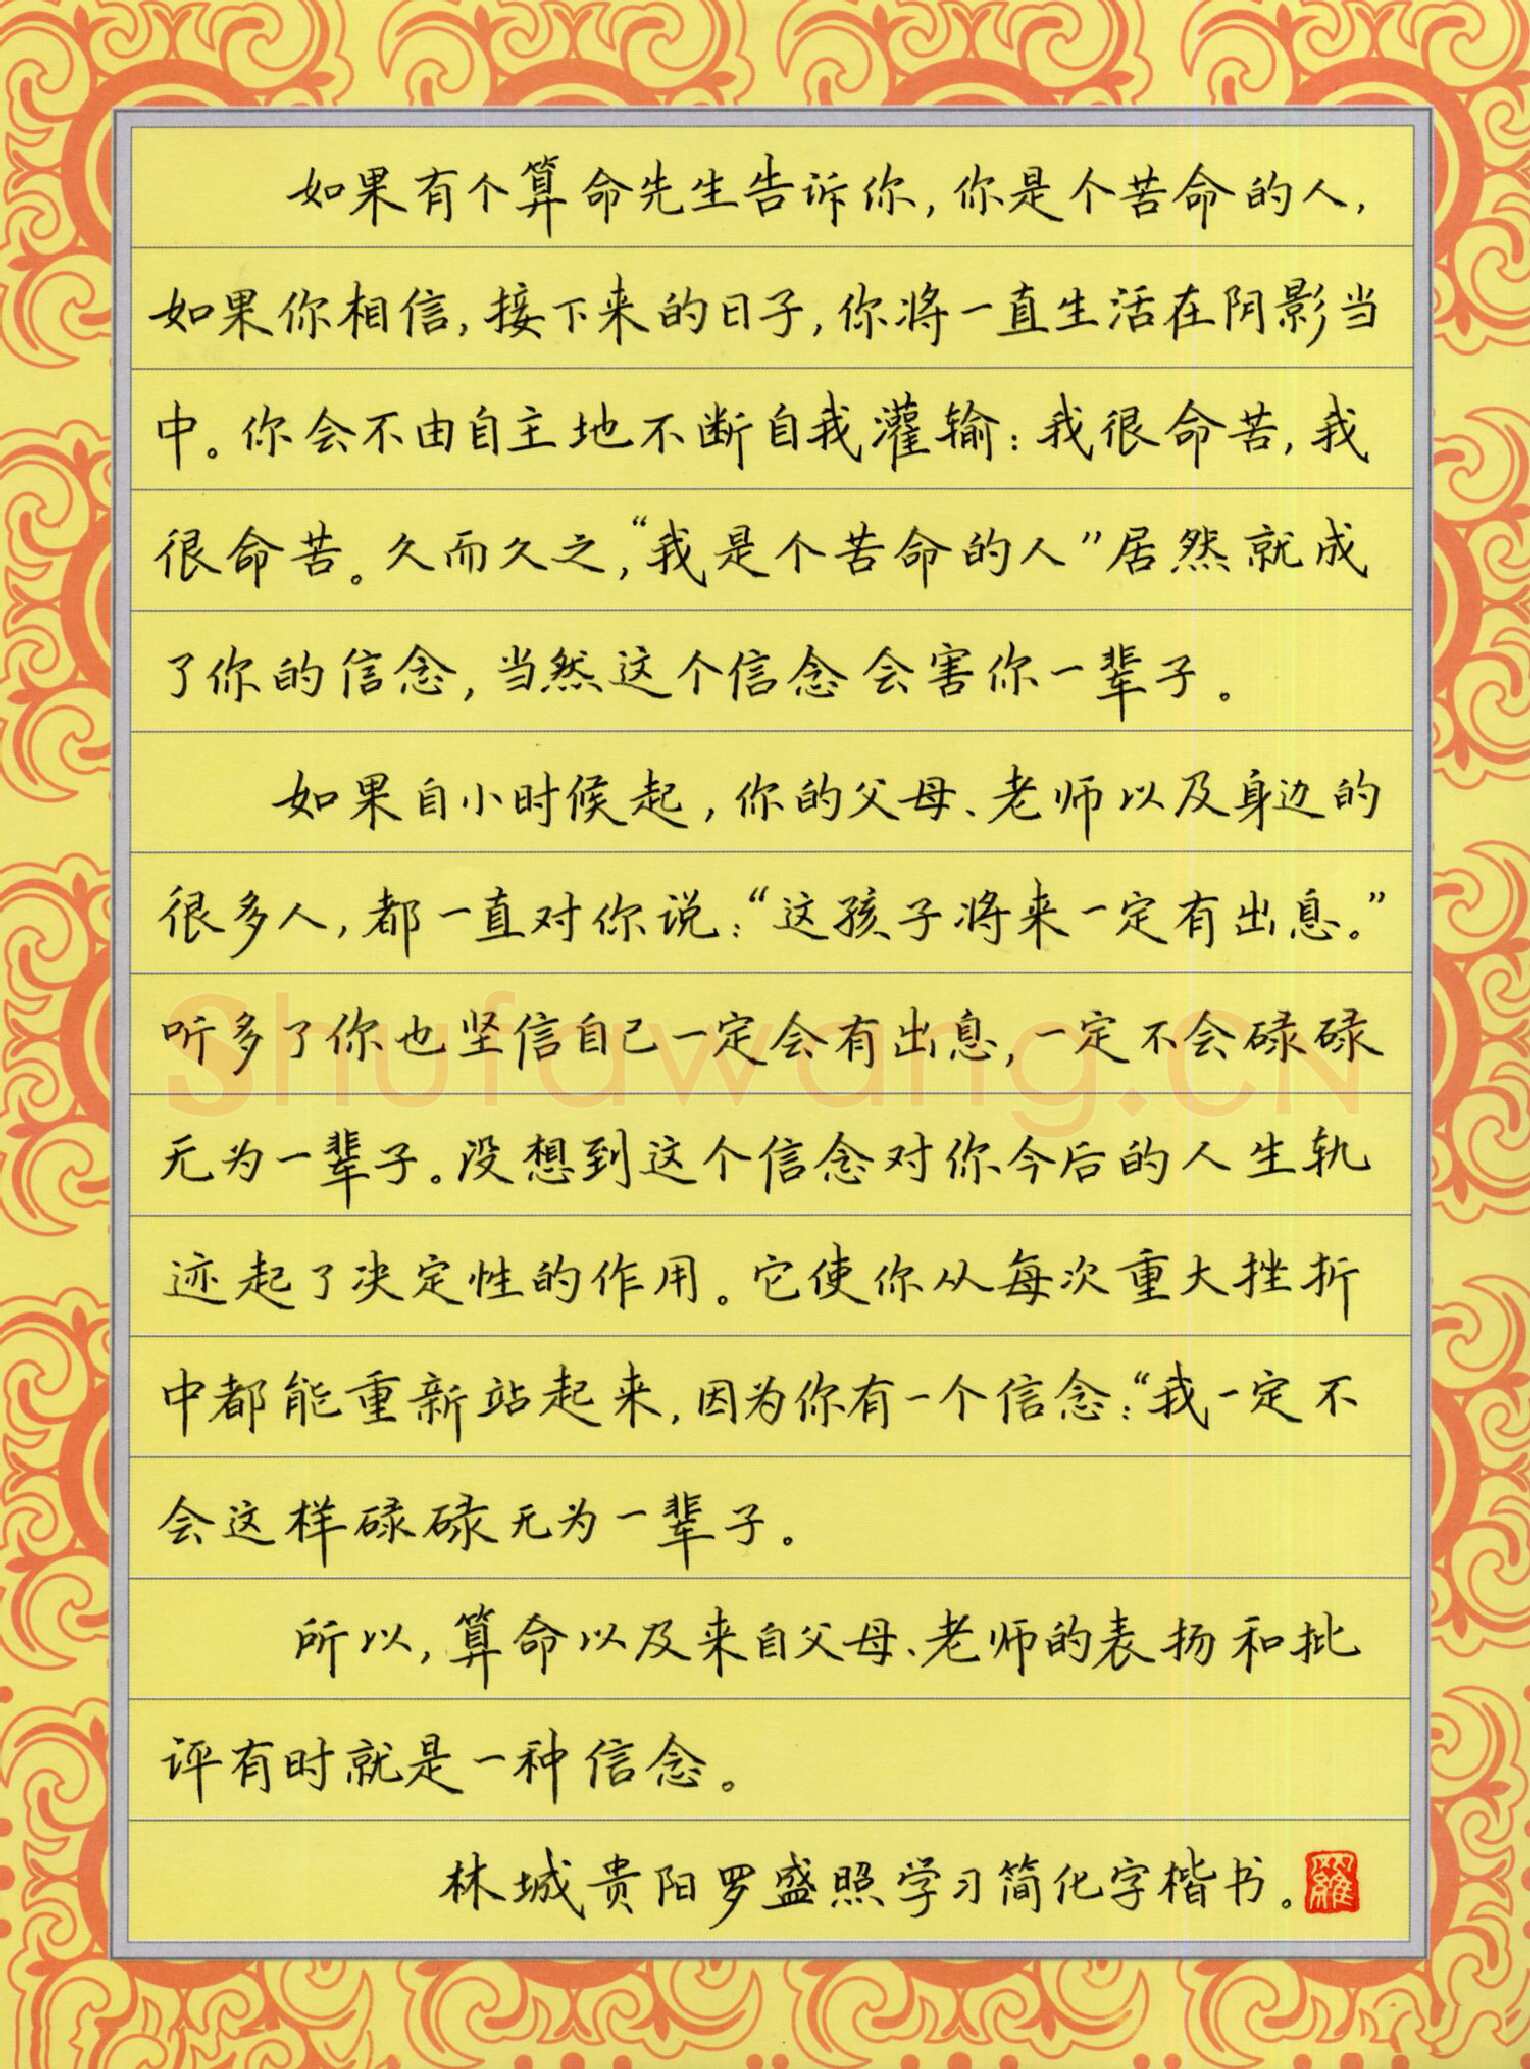 如果有个算命先生告诉你，你是个苦命的人，
如果你相信，接下来的日子，你将一直生活在阴影当
中。你会不由自主地不断自我灌输：我很命苦，我
很命苦。久而久之，“我是个苦命的人”居然就成
了你的信念，当然这个信念会害你一辈子。
如果自小时候起，你的父母、老师以及身边的
很多人，都一直对你说：“这孩子将来一定有出息。”
听多了你也坚信自己一定会有出息，一定不会碌碌
无为一辈子。没想到这个信念对你今后的人生轨
迹起了决定性的作用。它使你从每次重大挫折
中都能重新站起来，因为你有一个信念：“我一定不
会这样碌碌无为一辈子。
所以，算命以及来自父母、老师的表扬和批
评有时就是一种信念。
林城贵阳罗盛照学习简化字楷书。
羅
Shufawang.CN